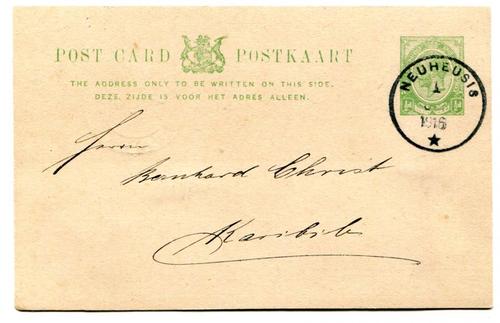 POST CARD POSTKAART
THE ADDRESS ONLY TO BE WRITTEN ON THIS SIDE.
DEZE ZIJDE IS VOOR HET ADRES ALLEEN.
NEUHEUSIS
1
1916
½d ½d
Herrn
Bernhard Christ
Karibib